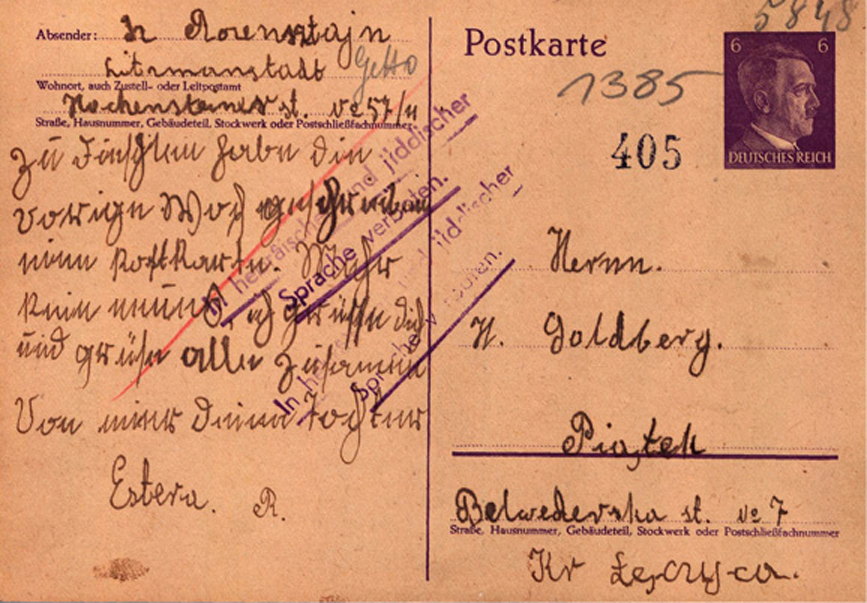 5848
Absender: Rosensztajn
Litzmanstadt Getto
Wohnort, auch Zustell- oder Leitpostamt
Hochensteiner st. № 57/11
Straße, Hausnummer, Gebäudeteil, Stockwerk oder Postschließfachnummer
habe die
vorige Woch geschrieben
eine Postkarte. Mehr
kein neues. Ich grüsse dich
und grüse alle zusamen
Von mir deine Tochter
Estera. R.
In hebräischer und jiddischer
Sprache verboten.
In hebräischer und jiddischer
Sprache verboten.
Postkarte
1385
405
6 6
DEUTSCHES REICH
Herrn.
H. Goldberg.
Piątek
Belwederska st. № 7
Straße, Hausnummer, Gebäudeteil, Stockwerk oder Postschließfachnummer
Kr Lęczyca.